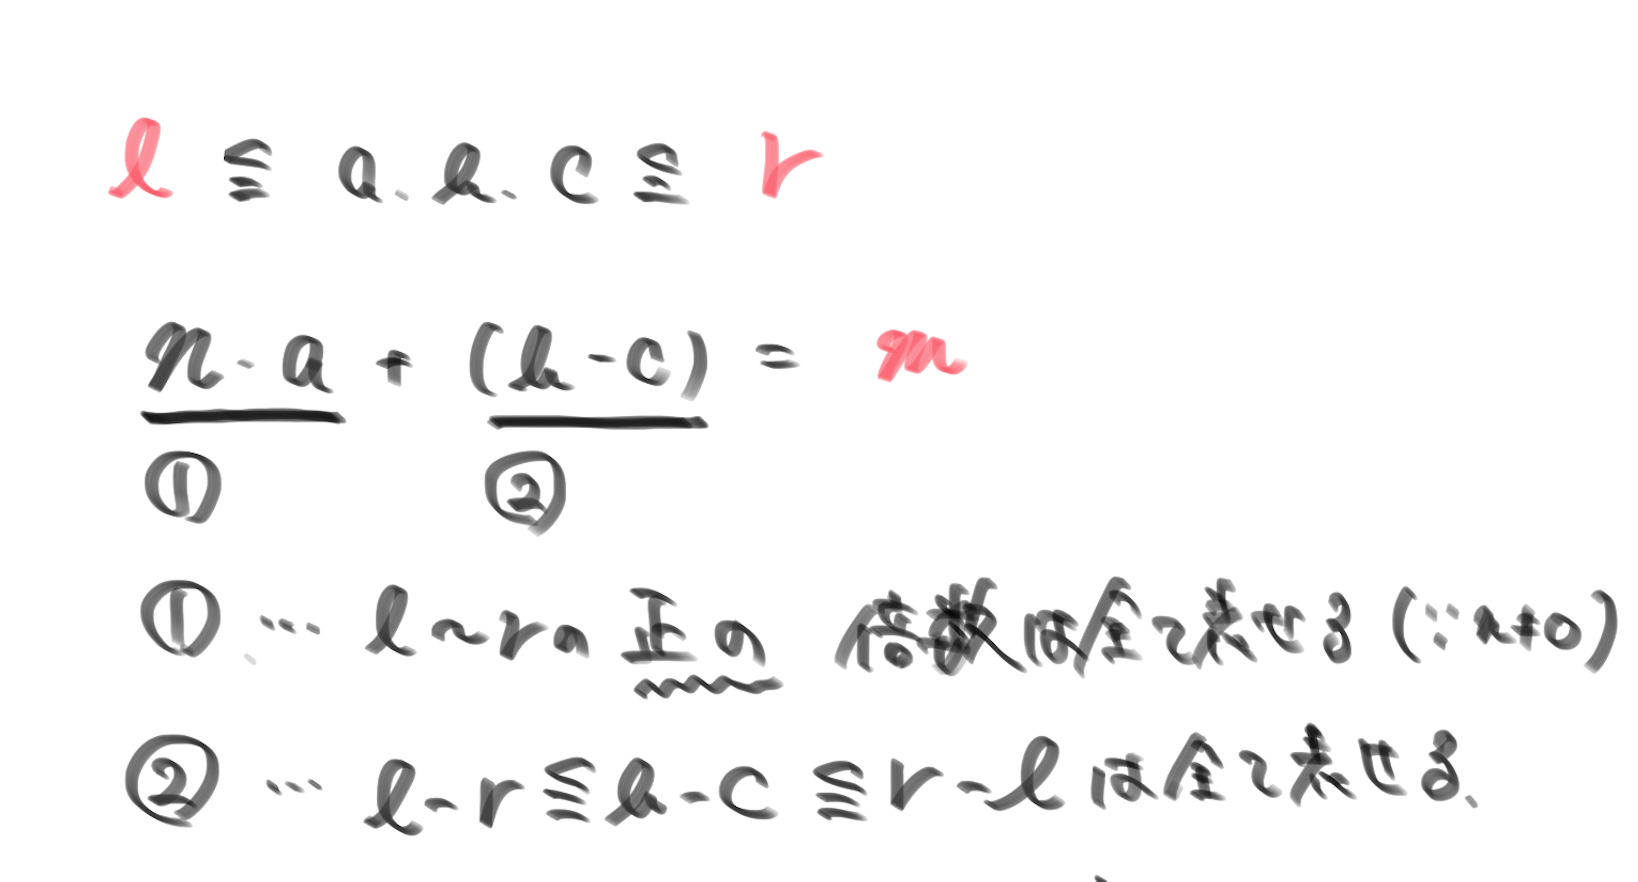 l ≦ a. b. c ≦ r
n・a + (b-c) = m
① ②
① … l〜rの 正の 倍数は全て表せる (∵ n≠0)
② … l-r ≦ b-c ≦ r-l は全て表せる.